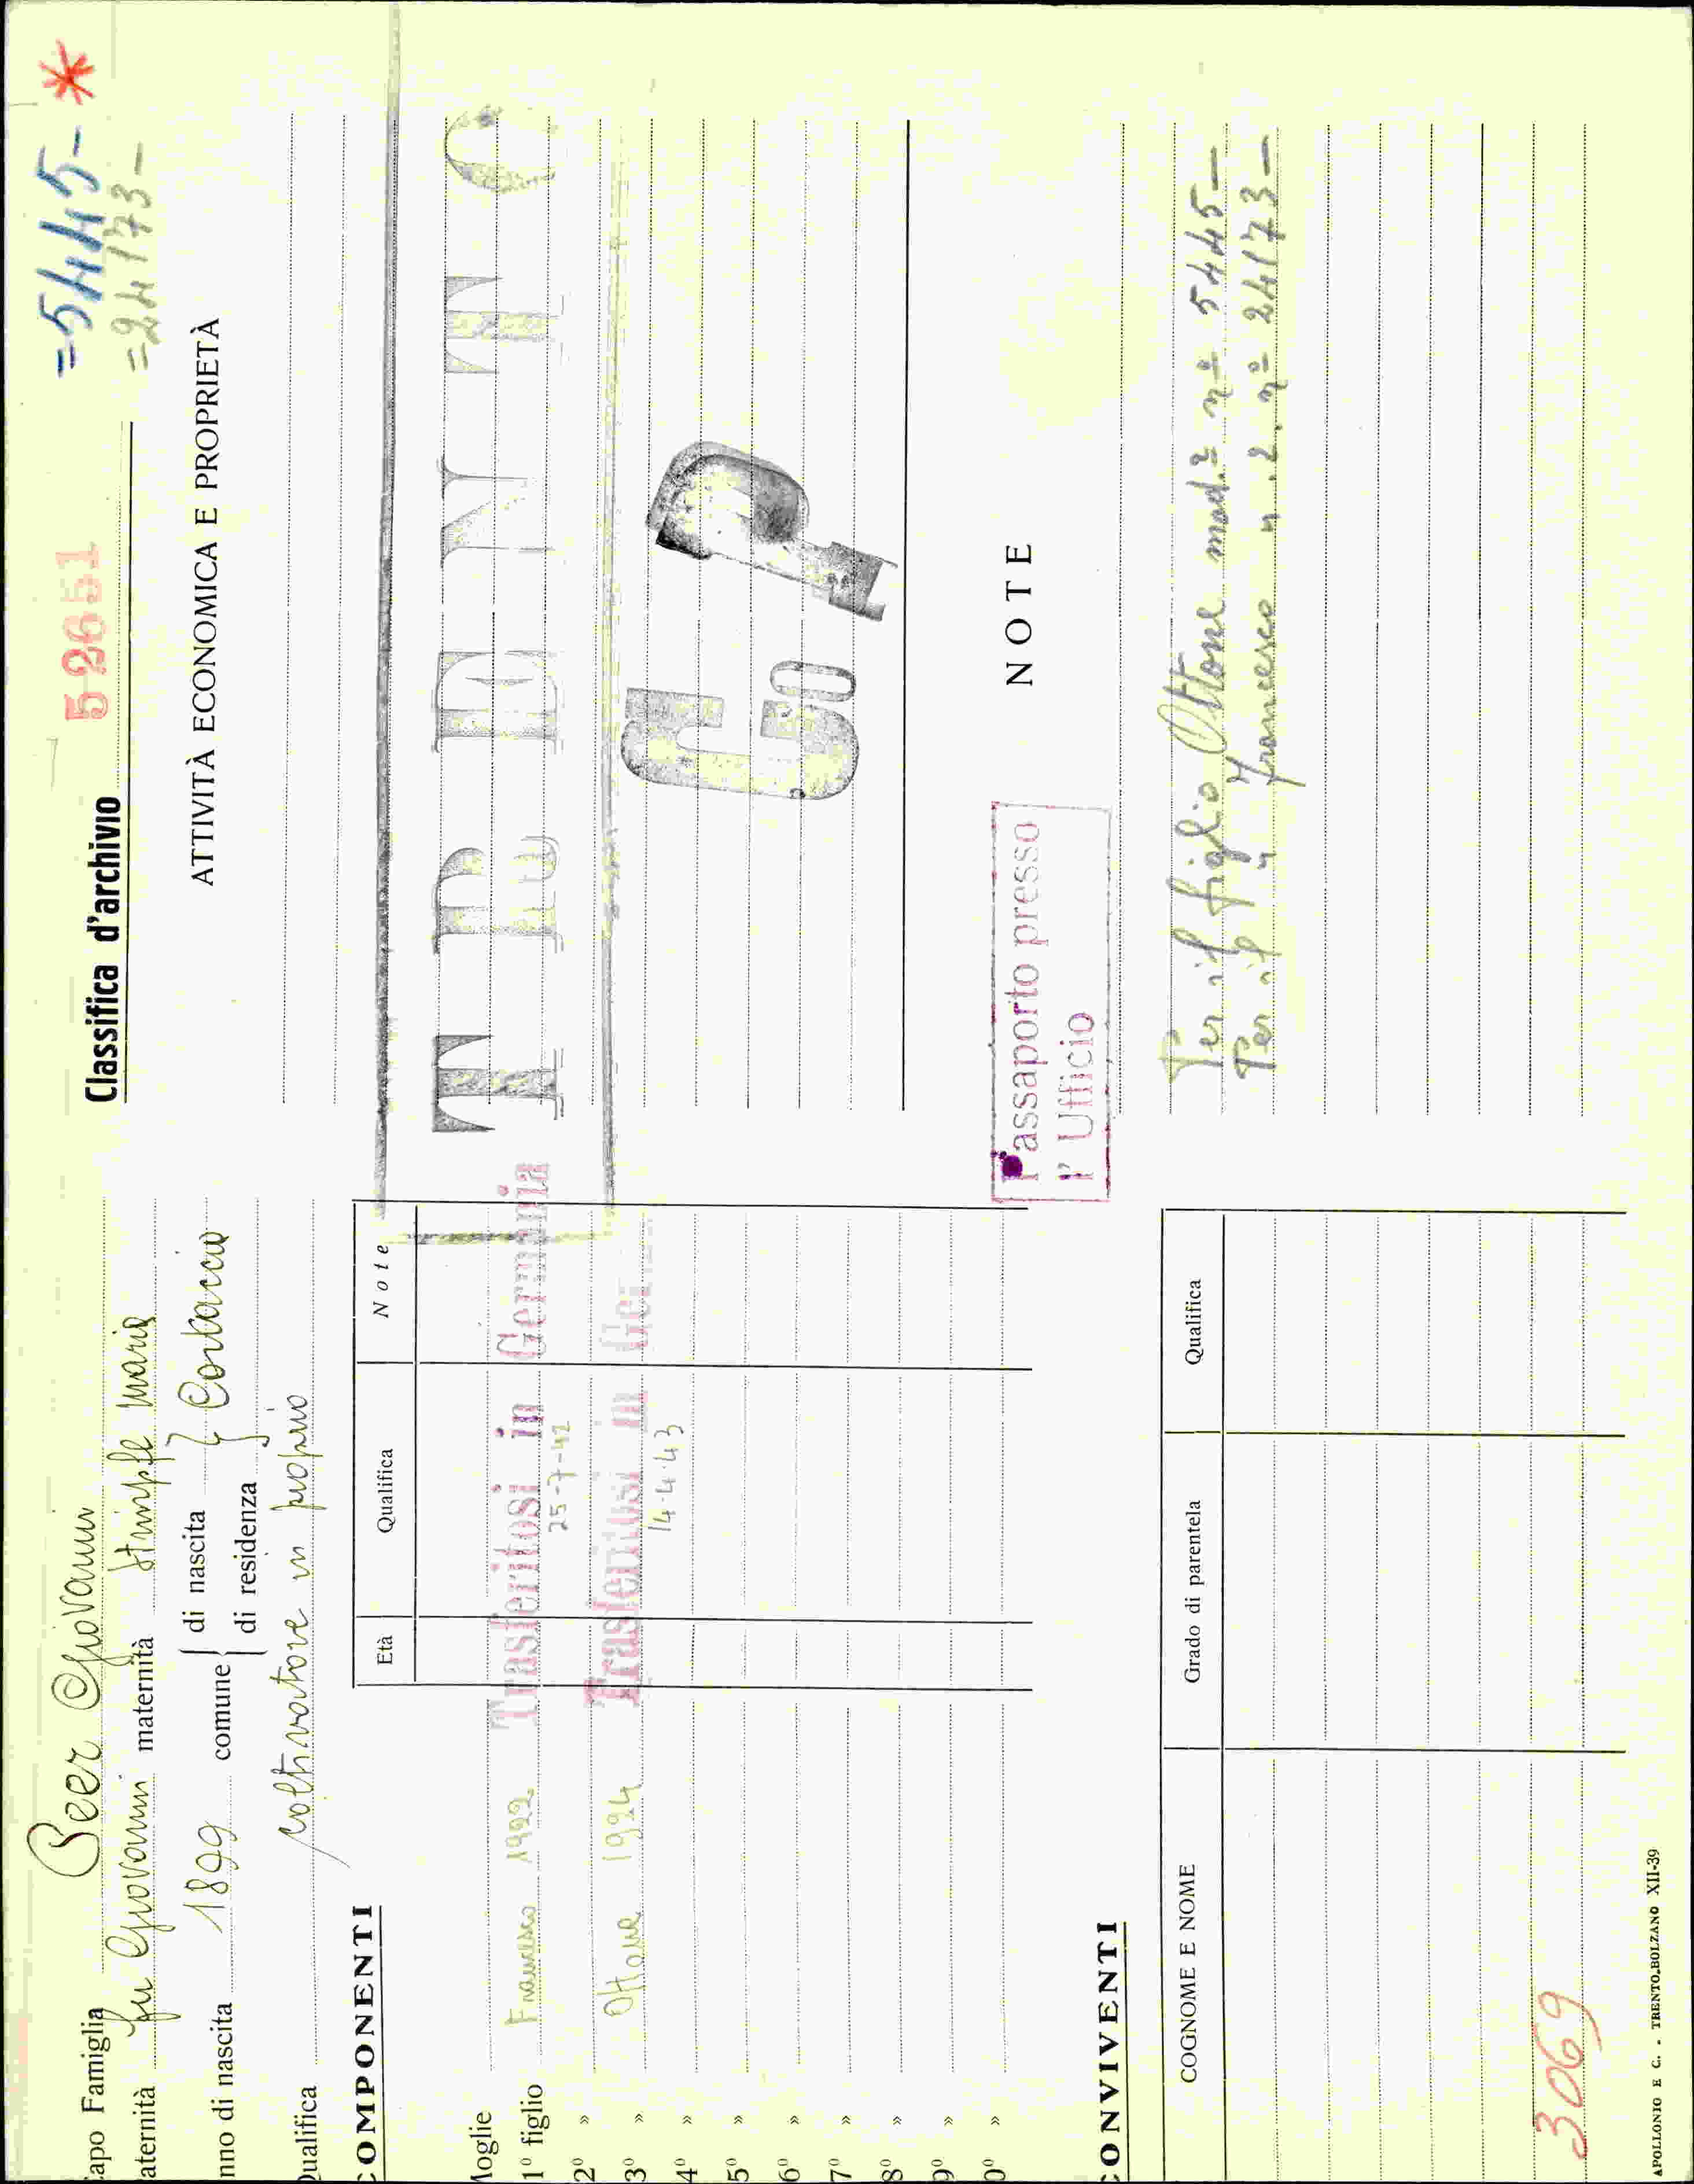 =5445-  *
=24173-
Capo Famiglia Beer Giovanni
Classifica d'archivio 52651
aternità fu Giovanni maternità Stimpfl Maria
nno di nascita 1899 comune { di nascita } Cortaccia
di residenza
ualifica coltivatore in proprio
ATTIVITÀ ECONOMICA E PROPRIETÀ
COMPONENTI
Età Qualifica Note
Moglie
1º figlio Francesco 1922 Trasferitosi in Germania
25-7-42
2º »
3º » Ottone 1924 Trasferitosi in Ger
14-4-43
4º »
5º »
6º »
7º »
8º »
9º »
0º »
TRENTO
NOTE
Passaporto presso
l'Ufficio
Per il figlio Ottone mod.2 nº 5445-
Per il " Francesco ".2. nº 24173-
CONVIVENTI
COGNOME E NOME Grado di parentela Qualifica
3069
APOLLONIO E C. - TRENTO-BOLZANO XII-39